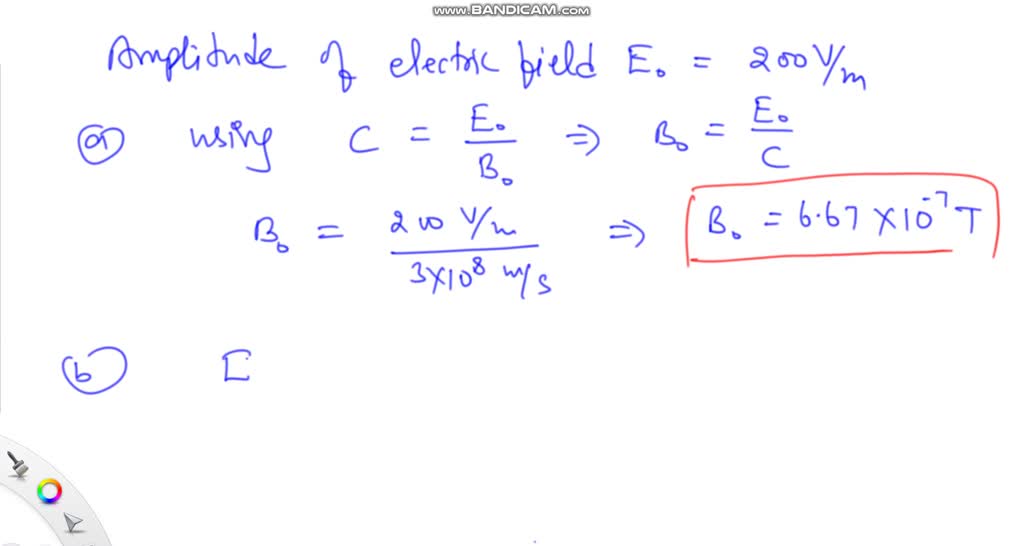 www.BANDICAM.com
Amplitude of electric field E₀ = 200 V/m
(a) using C = E₀/B₀ ⇒ B₀ = E₀/C
B₀ = 200 V/m / 3×10⁸ m/s ⇒ B₀ = 6.67 × 10⁻⁷ T
(b) E